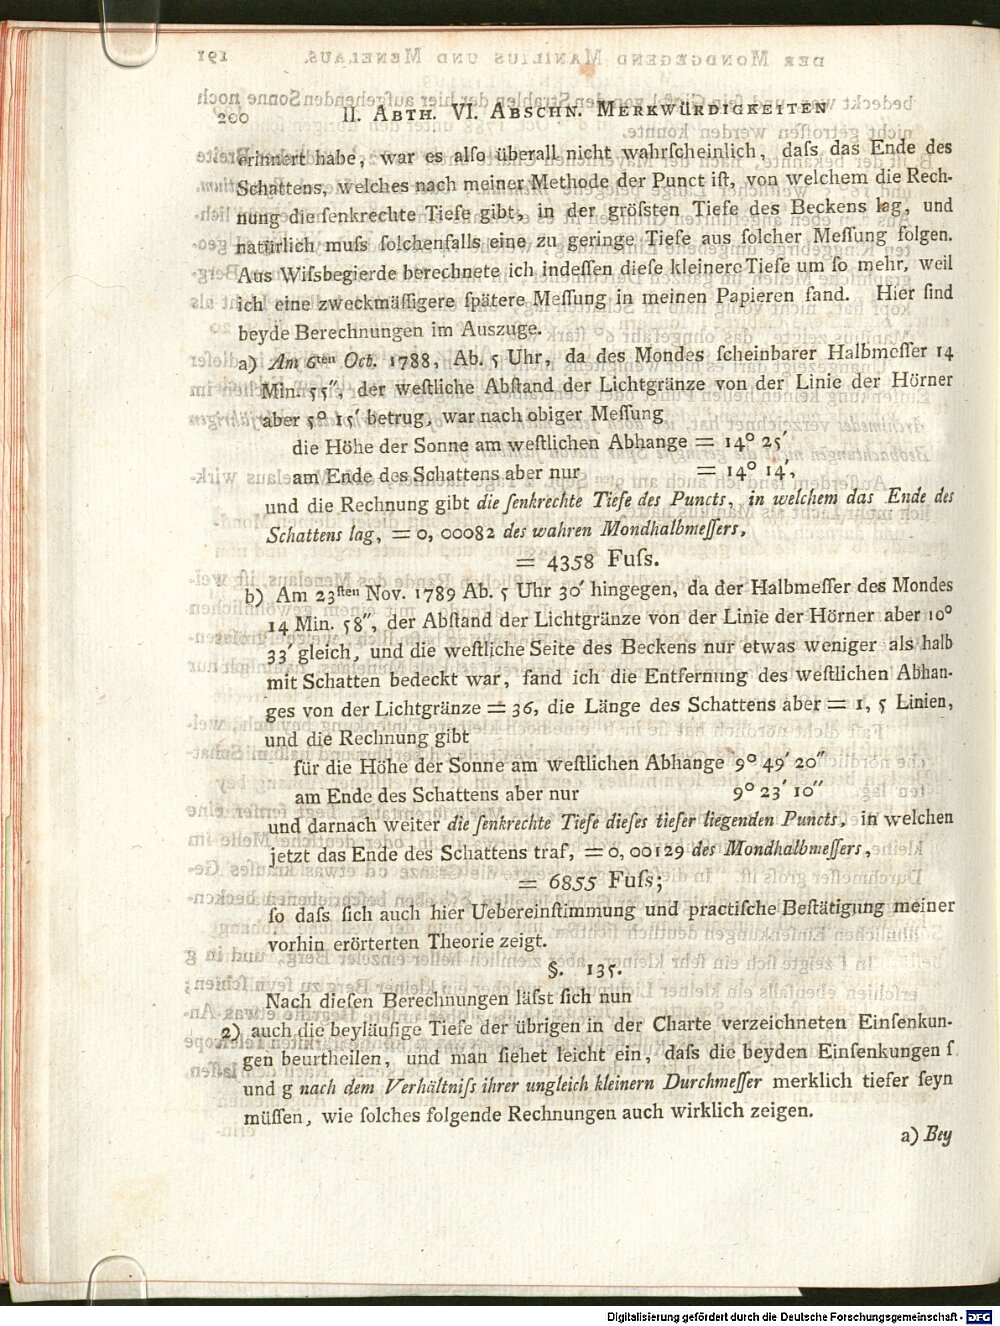 200 II. Abth. VI. Abschn. Merkwürdigkeiten
erinnert habe, war es alſo überall nicht wahrſcheinlich, daſs das Ende des
Schattens, welches nach meiner Methode der Punct iſt, von welchem die Rech-
nung die ſenkrechte Tiefe gibt, in der gröſsten Tiefe des Beckens lag, und
natürlich muſs ſolchenfalls eine zu geringe Tiefe aus ſolcher Meſſung folgen.
Aus Wiſsbegierde berechnete ich indeſſen dieſe kleinere Tiefe um ſo mehr, weil
ich eine zweckmäſſigere ſpätere Meſſung in meinen Papieren fand. Hier ſind
beyde Berechnungen im Auszuge.
a) Am 6ten Oct. 1788, Ab. 5 Uhr, da des Mondes ſcheinbarer Halbmeſſer 14
Min. 55″, der weſtliche Abſtand der Lichtgränze von der Linie der Hörner
aber 5° 15′ betrug, war nach obiger Meſſung
die Höhe der Sonne am weſtlichen Abhange = 14° 25′
am Ende des Schattens aber nur = 14° 14′,
und die Rechnung gibt die ſenkrechte Tiefe des Puncts, in welchem das Ende des
Schattens lag, = 0, 00082 des wahren Mondhalbmeſſers,
= 4358 Fuſs.
b) Am 23ſten Nov. 1789 Ab. 5 Uhr 30′ hingegen, da der Halbmeſſer des Mondes
14 Min. 58″, der Abſtand der Lichtgränze von der Linie der Hörner aber 10°
33′ gleich, und die weſtliche Seite des Beckens nur etwas weniger als halb
mit Schatten bedeckt war, fand ich die Entfernung des weſtlichen Abhan-
ges von der Lichtgränze = 36, die Länge des Schattens aber = 1, 5 Linien,
und die Rechnung gibt
für die Höhe der Sonne am weſtlichen Abhange 9° 49′ 20″
am Ende des Schattens aber nur 9° 23′ 10″
und darnach weiter die ſenkrechte Tiefe dieſes tiefer liegenden Puncts, in welchen
jetzt das Ende des Schattens traf, = 0, 00129 des Mondhalbmeſſers,
= 6855 Fuſs;
ſo daſs ſich auch hier Uebereinſtimmung und practiſche Beſtätigung meiner
vorhin erörterten Theorie zeigt.
§. 135.
Nach dieſen Berechnungen läſst ſich nun
2) auch die beyläufige Tiefe der übrigen in der Charte verzeichneten Einſenkun-
gen beurtheilen, und man ſiehet leicht ein, daſs die beyden Einſenkungen f
und g nach dem Verhältniſs ihrer ungleich kleinern Durchmeſſer merklich tiefer ſeyn
müſſen, wie ſolches folgende Rechnungen auch wirklich zeigen.
a) Bey
Digitalisierung gefördert durch die Deutsche Forschungsgemeinschaft - DFG